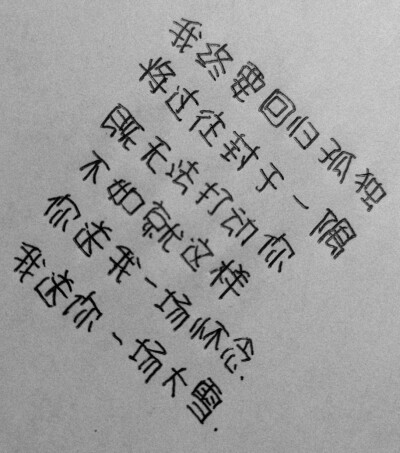 我终要回归孤独
将过往封于一隅
既无法打动你
不如就这样
你送我一场怀念.
我送你一场大雪.